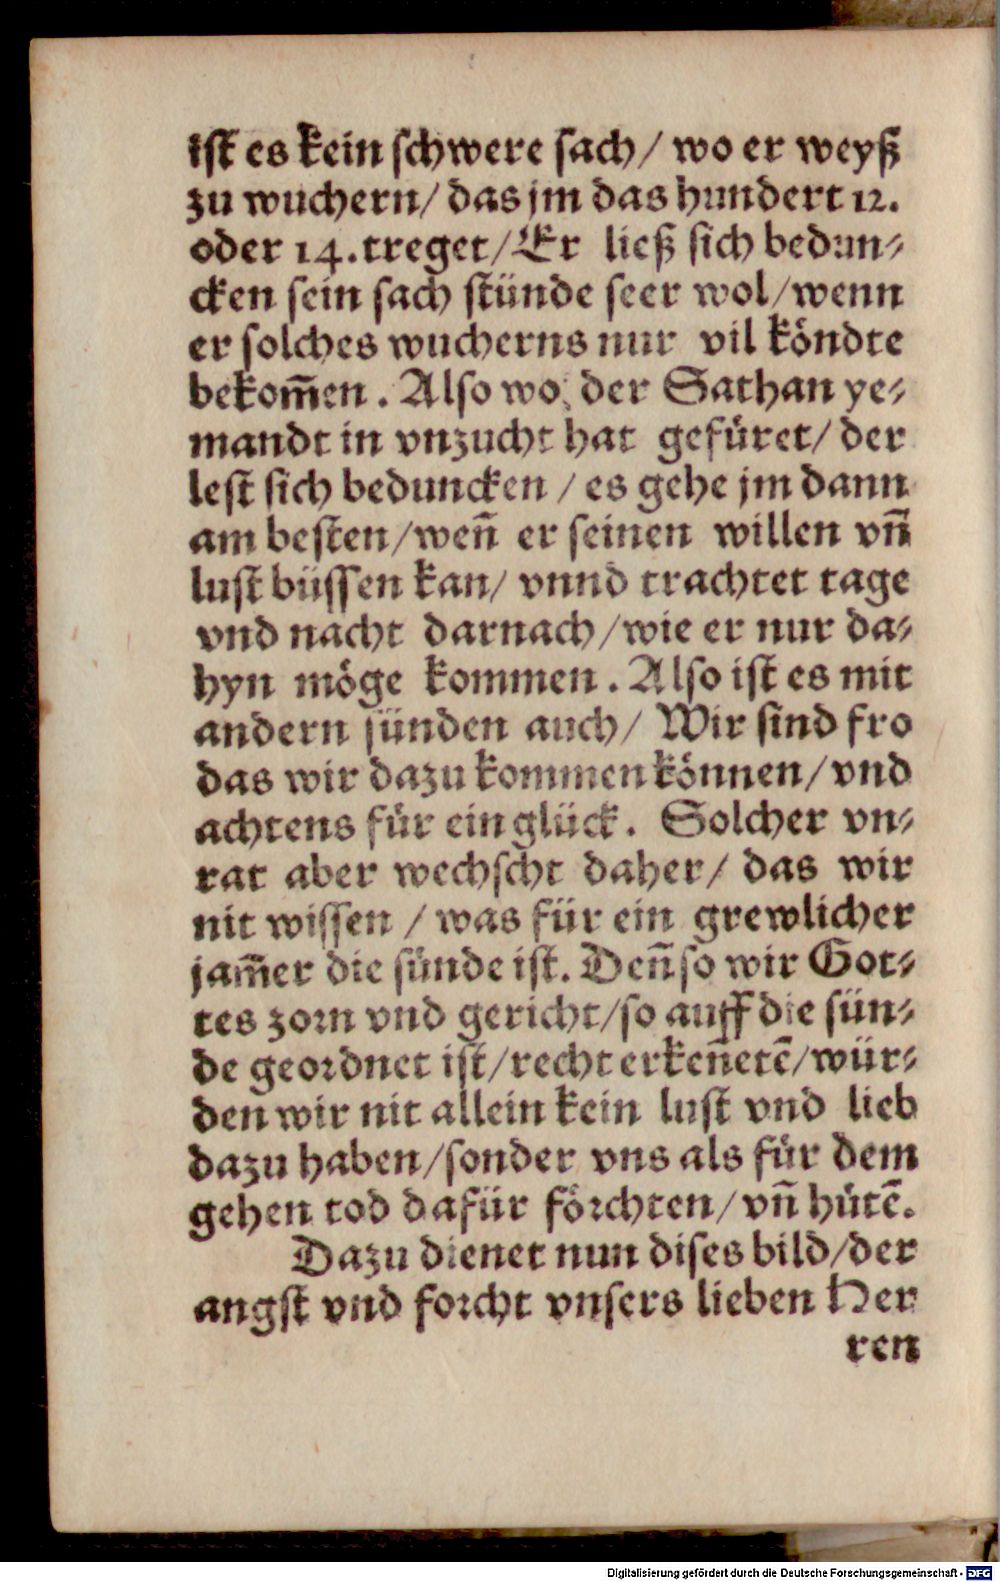 ist es kein schwere sach/ wo er weyß
zu wuchern/ das jm das hundert 12.
oder 14. treget/ Er ließ sich bedun-
cken sein sach stünde seer wol/ wenn
er solches wucherns nur vil köndte
bekom̄en. Also wo der Sathan ye-
mandt in vnzucht hat gefüret/ der
lest sich beduncken / es gehe jm dann
am besten/ weñ er seinen willen vñ
lust büssen kan/ vnnd trachtet tage
vnd nacht darnach/ wie er nur da-
hyn möge kommen. Also ist es mit
andern sünden auch/ Wir sind fro
das wir dazu kommen können/ vnd
achtens für ein glück. Solcher vn-
rat aber wechscht daher/ das wir
nit wissen / was für ein grewlicher
jam̄er die sünde ist. Deñ so wir Got-
tes zorn vnd gericht/ so auff die sün-
de geordnet ist/ recht erkeñetē/ wür-
den wir nit allein kein lust vnd lieb
dazu haben/ sonder vns als für dem
gehen tod dafür förchten/ vñ hütē.
Dazu dienet nun dises bild/ der
angst vnd forcht vnsers lieben Her
ren
Digitalisierung gefördert durch die Deutsche Forschungsgemeinschaft - DFG